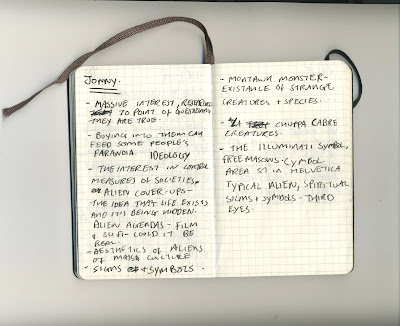 JONNY.
- MASSIVE INTEREST, RESEARCHED
TO POINT OF QUESTIONING
THEY ARE TRUE.
- BUYING INTO THEM CAN
FEED SOME PEOPLE'S
PARANOIA. IDEOLOGY
- THE INTEREST IN CONTROL
MEASURES OF SOCIETIES.
ALIEN COVER-UPS -
THE IDEA THAT LIFE EXISTS
AND IT'S BEING HIDDEN.
ALIEN AGENDAS - FILM
& SCI-FI - COULD IT BE
REAL.
- AESTHETICS OF ALIENS
OF MASS CULTURE
- SIGNS + SYMBOLS.
- MONTAUK MONSTER -
EXISTANCE OF STRANGE
CREATURES + SPECIES.
- LA CHUPPA CABRE
CREATURES.
- THE ILLUMINATI SYMBOL,
FREEMASONS SYMBOL
AREA 51 IN HELVETICA
TYPICAL ALIEN, SPIRITUAL
SIGNS + SYMBOLS - THIRD
EYES.